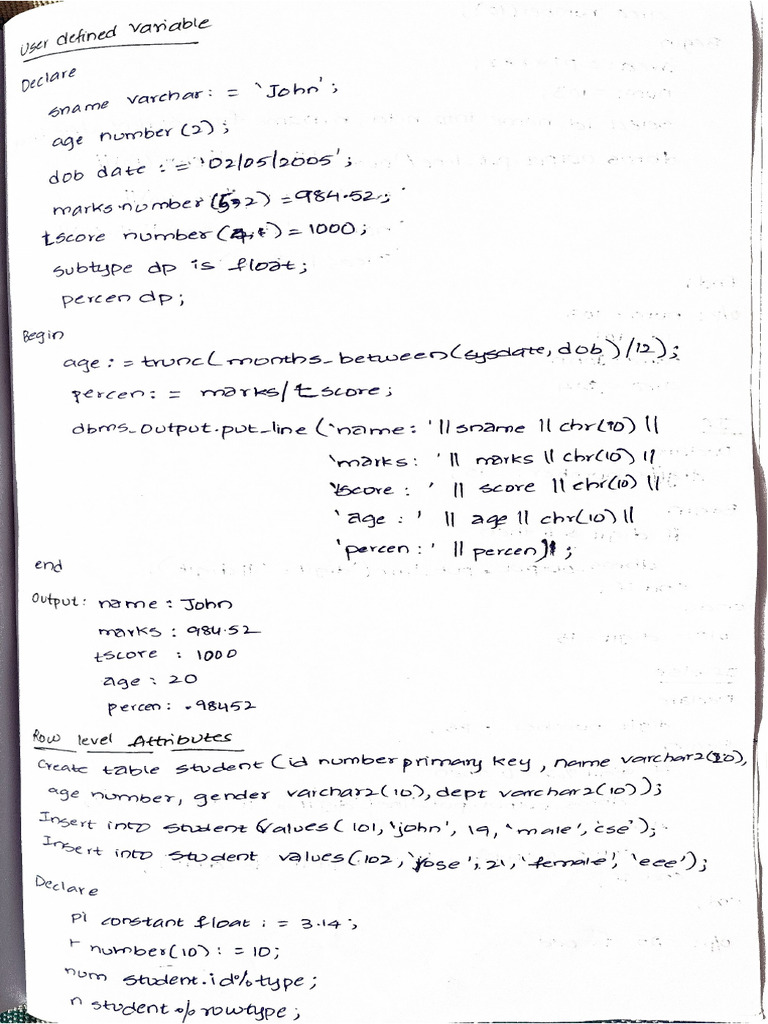 User defined variable
Declare
sname varchar: = 'John';
age number(2);
dob date : = '02/05/2005';
marks number(5,2) = 984.52;
tscore number(4,) = 1000;
subtype dp is float;
percen dp;
Begin
age : = trunc(months_between(sysdate, dob)/12);
percen: = marks/tscore;
dbms_output.put_line('name: '|| sname || chr(10) ||
'marks: '|| marks || chr(10) ||
'tscore : ' || score || chr(10) ||
'age : ' || age || chr(10) ||
'percen:' || percen);
end
Output: name : John
marks : 984.52
tscore : 1000
age : 20
percen: .98452
Row level Attributes
Create table student (id number primary key, name varchar2(20),
age number, gender varchar2(10), dept varchar2(10));
Insert into student values(101,'john', 19, 'male', cse');
Insert into student values(102,'jose', 21,'female', 'ece');
Declare
pi constant float : = 3.14;
r number(10) : = 10;
num student.id%type;
n student%rowtype;